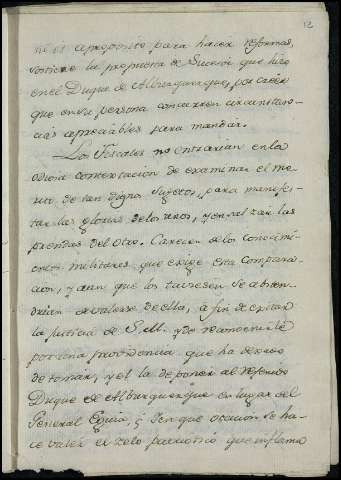 12
no es aproposito para hacer reformas,
sostiene la propuesta de Sucesor que hizo
en el Duque de Alburquerque, por creer
que en su persona concurren circunstan-
cias apreciables para mandar.
Los Fiscales no entrarian en la
odiosa contextacion de examinar el me-
rito de tan dignos Sugetos, para manifes-
tar las glorias de los unos, y enrealzar las
prendas del otro. Carecen de los conocimi-
entos militares que exige esta compara-
cion, y aun que los tuviesen se absten-
drian de valerse de ella, a fin de excitar
la justicia de S.M. y de reconvenirle
por una providencia que ha dexado
de tomar, y es la de poner al referido
Duque de Alburquerque en lugar del
General Eguia, ¿y en que ocasion se ha-
ce valer el zelo patriotico que inflama